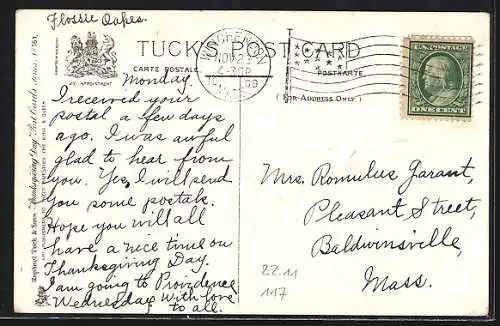 Flossie Oakes.
TUCK'S POST CARD
CARTE POSTALE
POSTKARTE
BY APPOINTMENT
(FOR ADDRESS ONLY)
WINCHENDON
NOV 23
4-30P
1909
MASS.
U.S. POSTAGE
ONE CENT
Monday.
I received your
postal a few days
ago. I was awful
glad to hear from
you. Yes, I will send
you some postals.
Hope you will all
have a nice time on
Thanksgiving Day.
I am going to Providence
Wednesday. With love
to all.
Mrs. Romulus Garant,
Pleasant Street,
Baldwinsville,
Mass.
22.11
117
Raphael Tuck & Sons "Thanksgiving Day" Post Cards